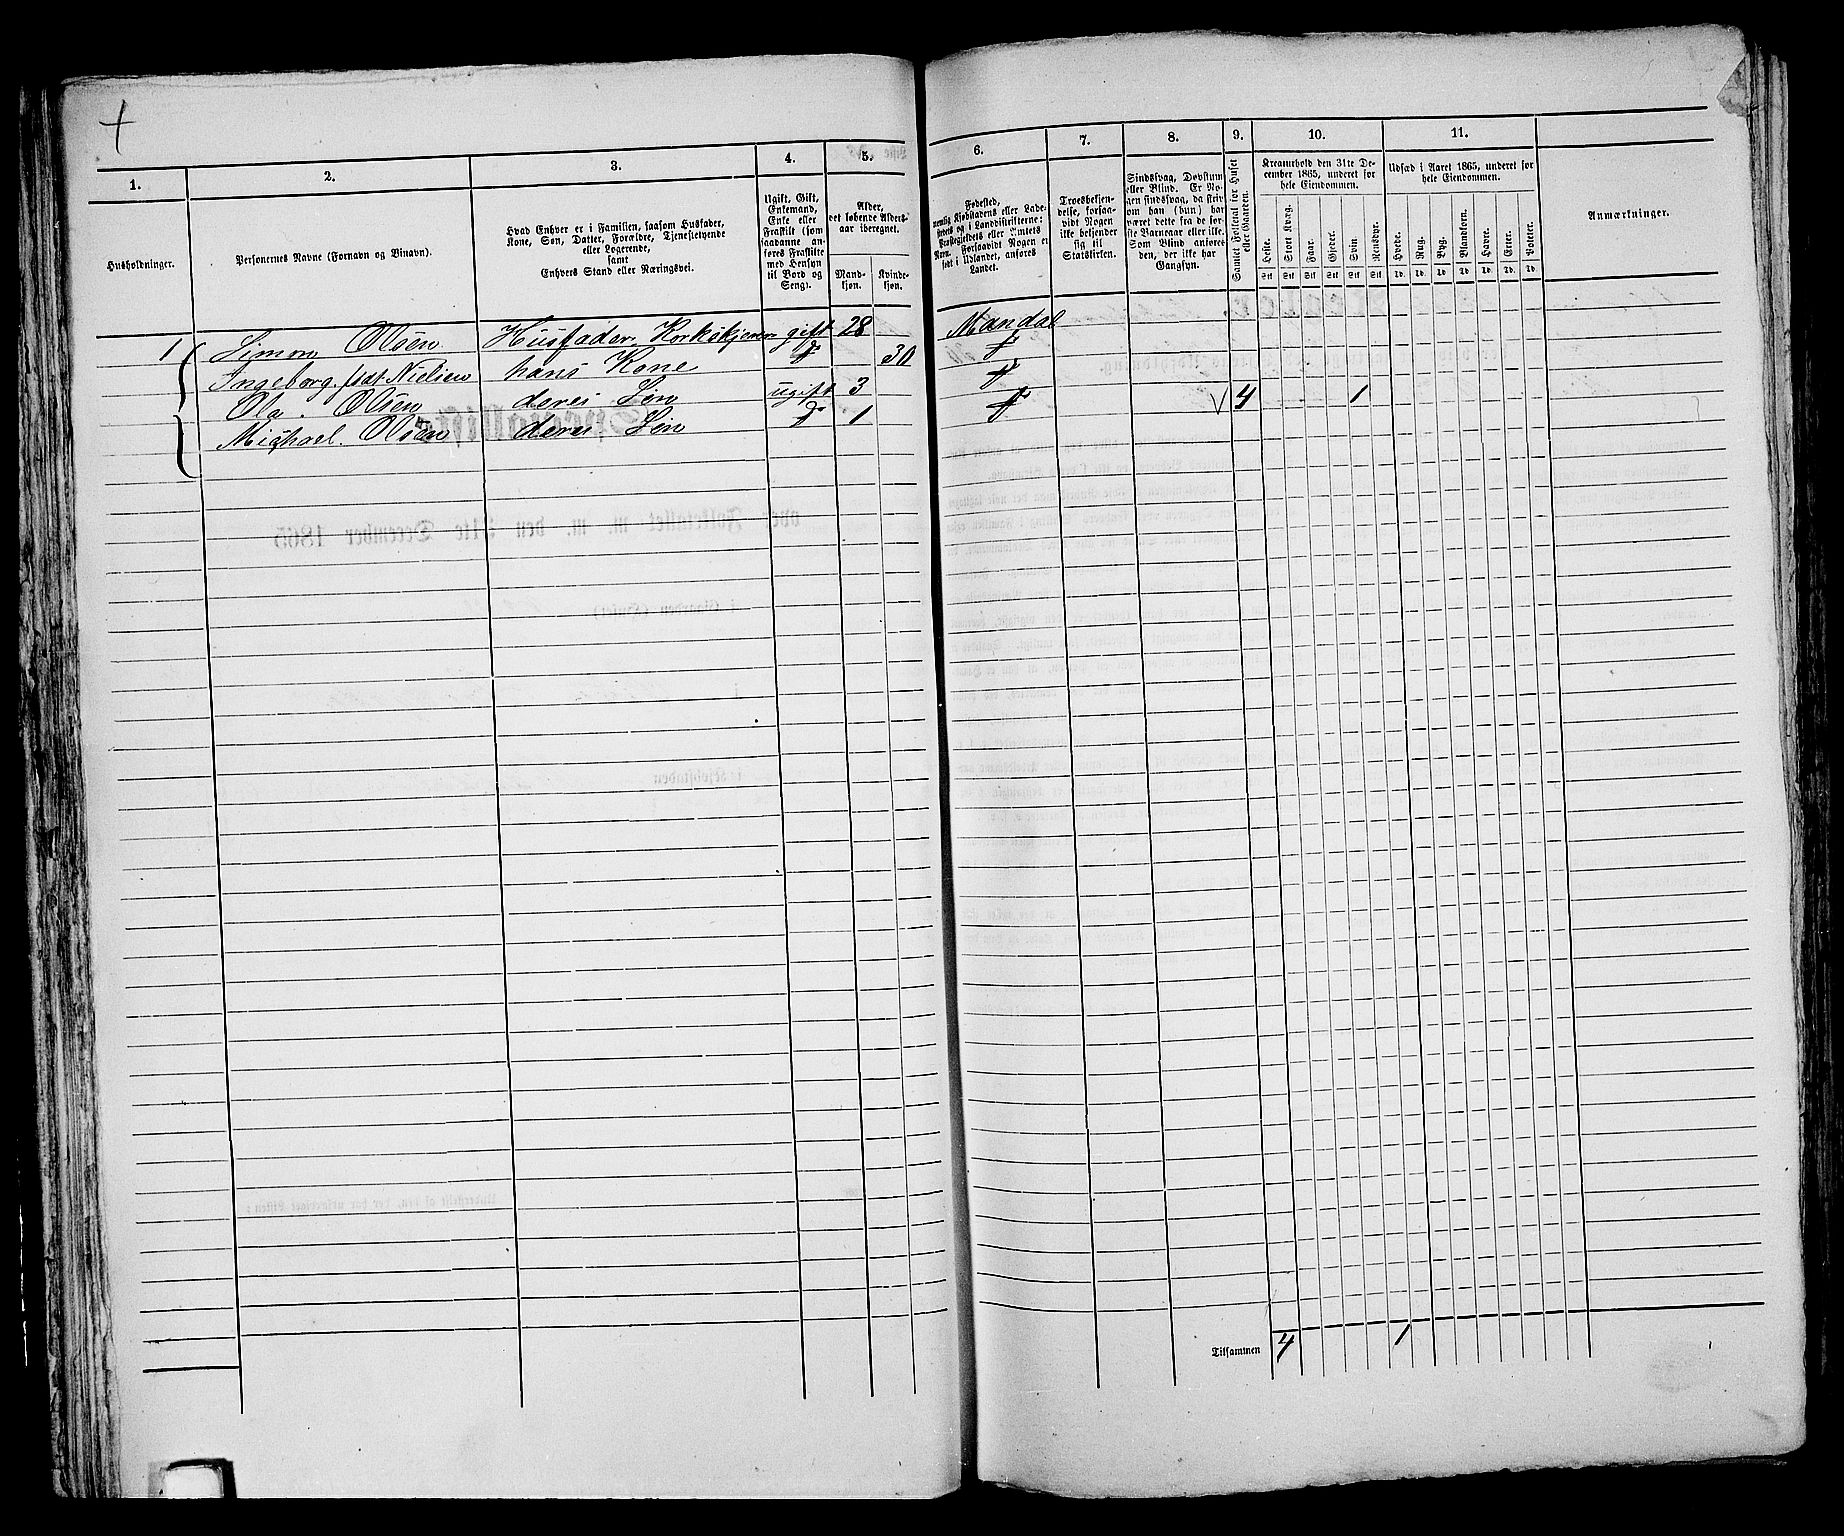 1. 2. 3. 4. 5. 6. 7. 8. 9. 10. 11.
Husholdninger.
Personernes Navne (Fornavn og Binavn).
Hvad Enhver er i Familien, saasom Husfader,
Kone, Søn, Datter, Forældre, Tjenestetyende
eller Logerende,
samt
Enhvers Stand eller Næringsvei.
Ugift, Gift,
Enkemand,
Enke eller
Fraskilt (som
saadanne an-
føres Fraskilte
med Hensyn
til Bord og
Seng).
Alder,
det løbende Alders-
aar iberegnet.
Mand-
kjøn.
Kvinde-
kjøn.
Fødested,
nemlig Kjøbstadens eller Lade-
stedets og i Landdistrikterne:
Præstegjeldets eller Amtets
Navn. Forsaavidt Nogen er
født i Udlandet, anføres
Landet.
Troesbekjen-
delse, forsaa-
vidt Nogen
ikke bekjender
sig til
Statskirken.
Sindssvag, Døvstum
eller Blind. Er No-
gen sindssvag, da skriv
om han (hun) har
været dette fra de før-
ste Barneaar eller ikke.
Som Blind anføres
den, der ikke har
Gangsyn.
Samlet Folketal for Huset
eller Gaarden.
Kreaturhold den 31te De-
cember 1865, underet for
hele Eiendommen.
Heste. Stort Kvæg. Faar. Gjeder. Svin. Rensdyr.
Stk Stk Stk Stk Stk Stk
Udsæd i Aaret 1865, underet for
hele Eiendommen.
Hvede. Rug. Byg. Blankorn. Havre. Erter. Poteter.
Td. Td. Td. Td. Td. Td. Td.
Anmærkninger.
1 Simon Olsen Husfader. Korkskjærer gift 28 Mandal
Ingeborg. født Nielsen hans Kone 30
Ola. Olsen deres Søn ugift 3
Michael. Olsen deres Søn 1 4 1
Tilsammen 4 1